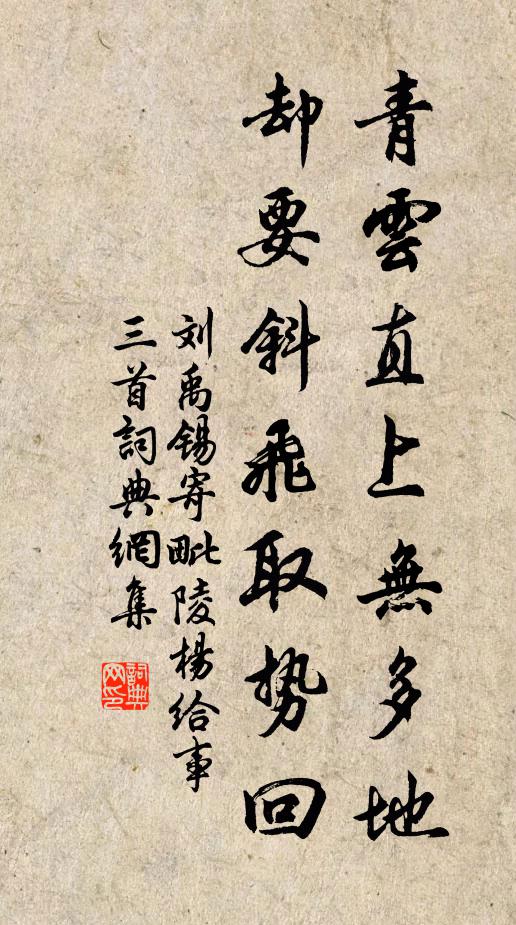 青雲直上無多地
却要斜飛取势回
刘禹锡寄毗陵楊给事
三首詞典網集
詞典网印